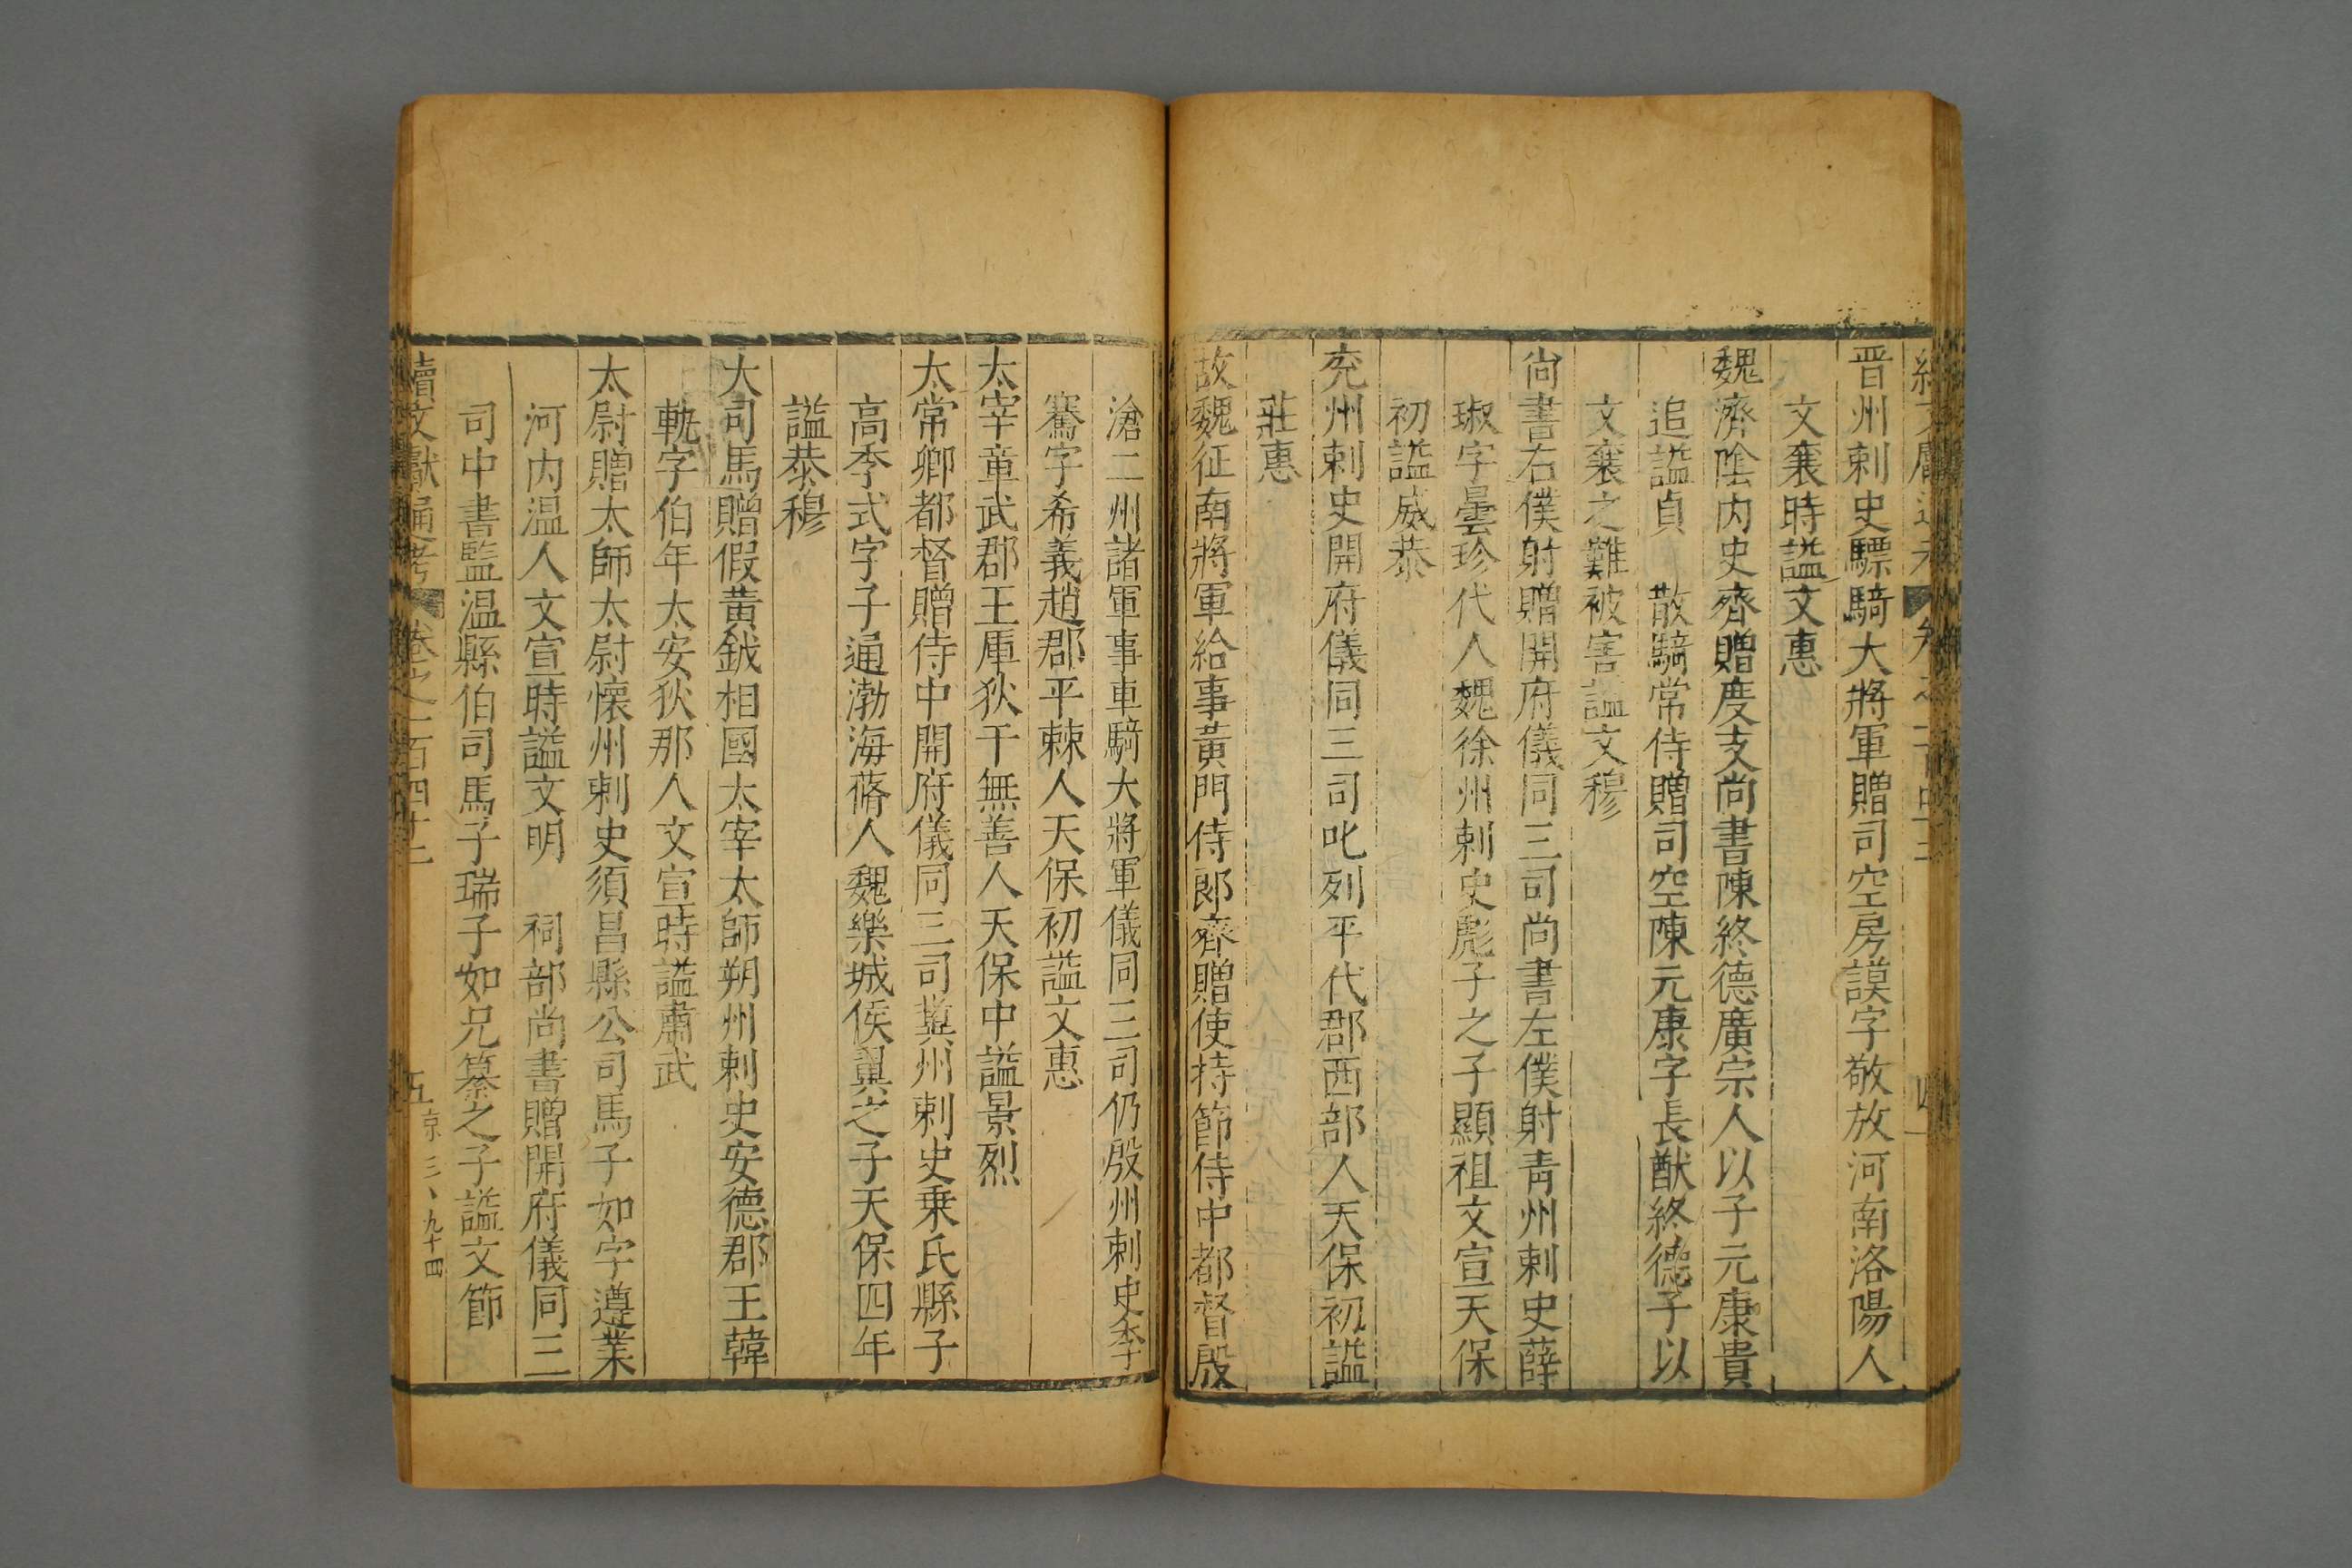 晋州刺史驃騎大將軍贈司空房謨字敬放河南洛陽人
文襄時謚文惠
魏濟隂内史齊贈度支尚書陳終德廣宗人以子元康貴
追謚貞　散騎常侍贈司空陳元康字長猷終德子以
文襄之難被害謚文穆
尚書右僕射贈開府儀同三司尚書左僕射青州刺史薛
琡字曇珍代人魏徐州刺史彪子之子顯祖文宣天保
初謚威恭
兖州刺史開府儀同三司叱列平代郡西部人天保初謚
莊惠
故魏征南將軍給事黃門侍郎齊贈使持節侍中都督殷
滄二州諸軍事車騎大將軍儀同三司仍殷州刺史李
騫字希義趙郡平棘人天保初謚文惠
太宰章武郡王厙狄干無善人天保中謚景烈
太常卿都督贈侍中開府儀同三司冀州刺史乗氏縣子
高季式字子通渤海蓨人魏樂城侯翼之子天保四年
謚恭穆
大司馬贈假黃鉞相國太宰太師朔州刺史安德郡王韓
軌字伯年太安狄那人文宣時謚肅武
太尉贈太師太尉懐州刺史須昌縣公司馬子如字遵業
河内温人文宣時謚文明　祠部尚書贈開府儀同三
司中書監温縣伯司馬子瑞子如兄纂之子謚文節
續文獻通考 卷之一百四十二 五 京 三、九十四